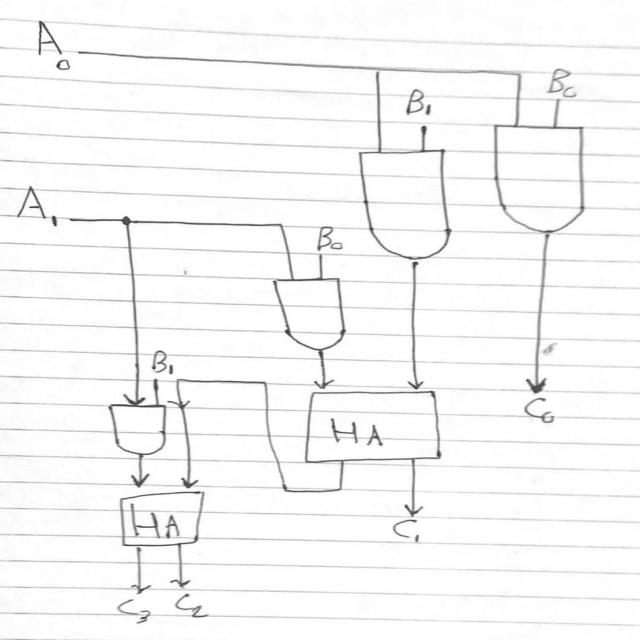 A₀
B₁
B₀
A₁
B₀
B₁
HA
C₀
HA
C₁
C₃ C₂